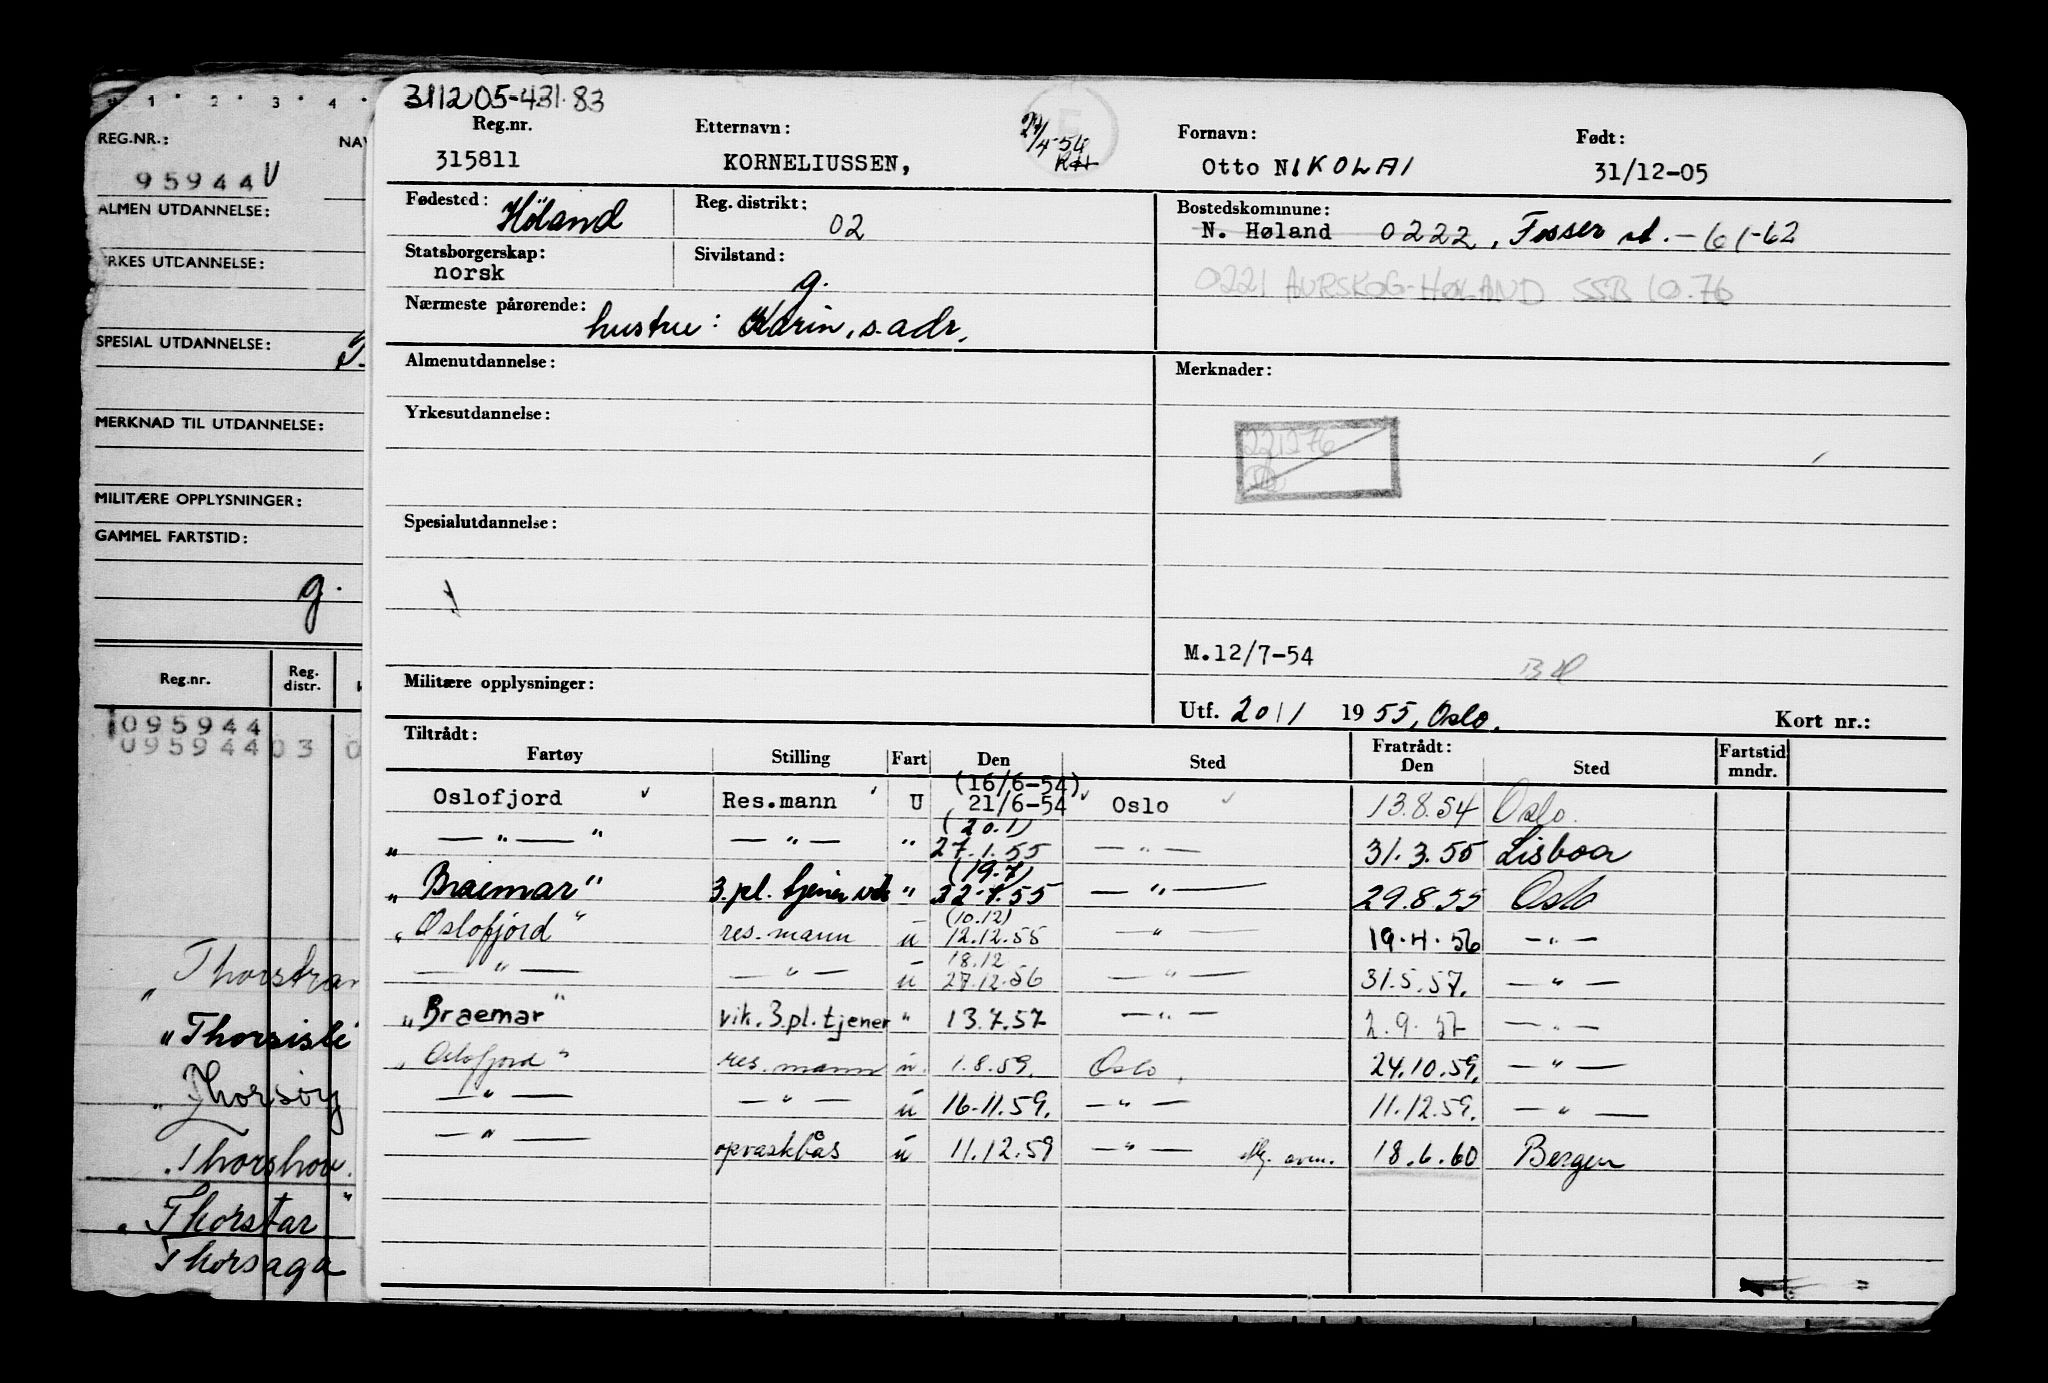 1 2 3 4
REG.NR.:
NAV
95944 U
ALMEN UTDANNELSE:
YRKES UTDANNELSE:
SPESIAL UTDANNELSE:
MERKNAD TIL UTDANNELSE:
MILITÆRE OPPLYSNINGER:
GAMMEL FARTSTID:
g.
Reg.nr. Reg. distr.
095944
095944 03 0
„Thorstran
„Thorsisle
„Thorsøy
„Thorshov.
„Thorstar"
Thorsaga
311205-431.83
Reg.nr. Etternavn: Fornavn: Født:
315811 KORNELIUSSEN, Otto NIKOLAI 31/12-05
Fødested: Høland Reg. distrikt: 02 Bostedskommune:
N. Høland 0222, Fosser st. - 61-62
Statsborgerskap: norsk Sivilstand: g.
0221 AURSKOG-HØLAND SSB 10.76
Nærmeste pårørende: hustru: Karin, s. adr.
Almenutdannelse: Merknader:
Yrkesutdannelse:
221276
Spesialutdannelse:
M.12/7-54
Militære opplysninger:
Utf. 20/1 1955, Oslo. Kort nr.:
Tiltrådt: Fratrådt:
Fartøy Stilling Fart Den Sted Den Sted Fartstid mndr.
(16/6-54)
Oslofjord Res.mann U 21/6-54 Oslo 13.8.54 Oslo.
(20.1)
— " — " — " — " 27.1.55 — " — 31.3.55 Lisboa
(19.7)
„Braemar" 3.pl. tjener " 22.7.55 — " — 29.8.55 Oslo
(10.12)
„Oslofjord" res.mann u 12.12.55 — " — 19.4.56 — " —
18.12
— " — — " — u 27.12.56 — " — 31.5.57. — " —
„Braemar" vik. 3.pl.tjener " 13.7.57 — " — 2.9.57 — " —
„Oslofjord" res.mann u. 1.8.59. Oslo, 24.10.59. — " —
— " — — " — u 16.11.59. — " — 11.12.59. — " —
— " — opvaskbas u 11.12.59 — " — 18.6.60 Bergen